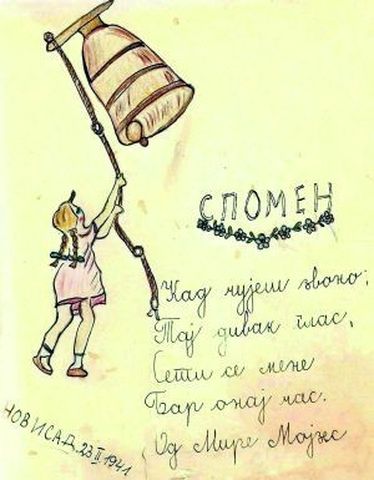 СПОМЕН
Кад чујеш звоно;
Тај диван глас,
Сети се мене
Бар онај час.
Од Мире Мојзес
НОВИ САД. 23 II 1941